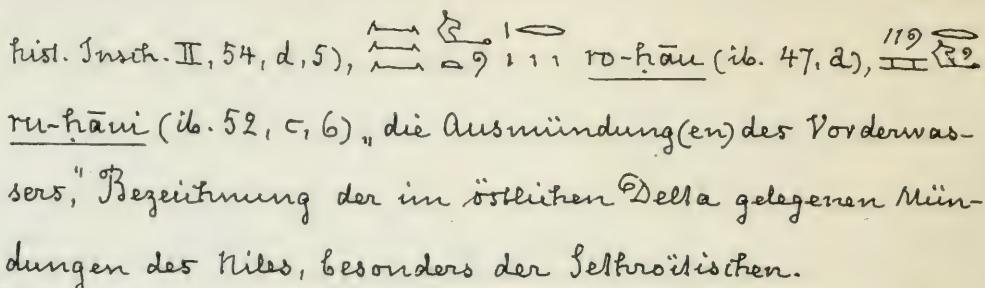 hist. Insch. II, 54, d, 5), ro-ḥāu (ib. 47, a),
ru-ḥāui (ib. 52, c, 6) „die Ausmündung(en) des Vorderwas-
sers," Bezeichnung der im östlichen Delta gelegenen Mün-
dungen des Niles, besonders der Sethroïtischen.